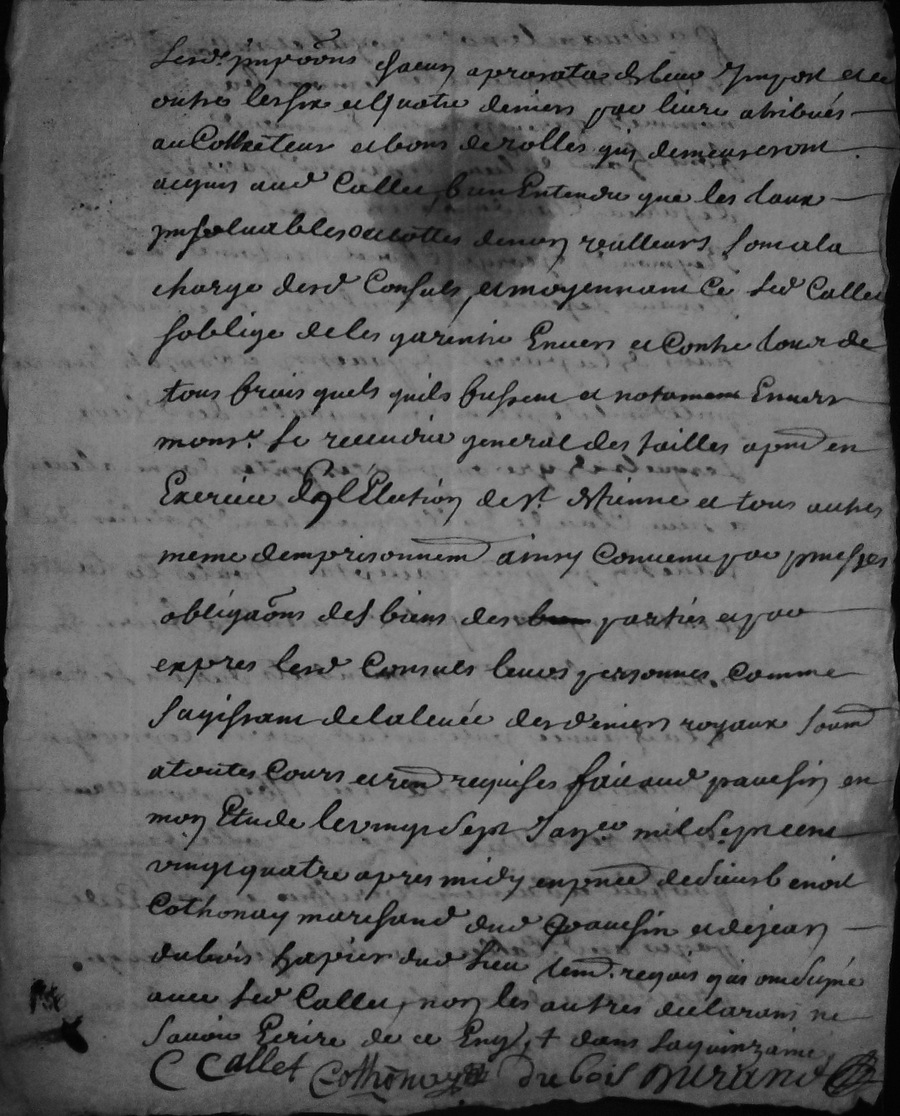 Lesd. impoõns chacun aprorata de leur Impost et en
outre les six et quatre deniers par livre atribués
au Collecteur et bons de rolles qui demeureront
acquis aud Callet, bien Entendu que les taux
insolvables et cottes
charge desd Consuls, et moyennant ce led Callet
soblige de les garentir Envers et Contre tous de
tous frais quels quils fussent et notament Envers
monsr. le receveur general des tailles apnt en
Exercice de l'Election de St. Etienne et tous autres
meme demprisonnemt ainsy Convenu par
obligaõns des biens des parties et par
expres lesd Consuls leurs personnes. Comme
sagissant de la levée des deniers royaux soumt
a toutes Cours et ren requises fait aud pauchin en
mon Etude le vingt sept Janer mil sept cent
vingt quatre apres midy en pnce de sieurs benoit
Cothonay marchand dud pauchin et de jean
dubois dud lieu tem. requis qui ont signé
avec led Callet, non les autres declarans ne
savoir Ecrire de ce Enq. et dans la quinzaine,
C Callet Cothonay dubois Durand